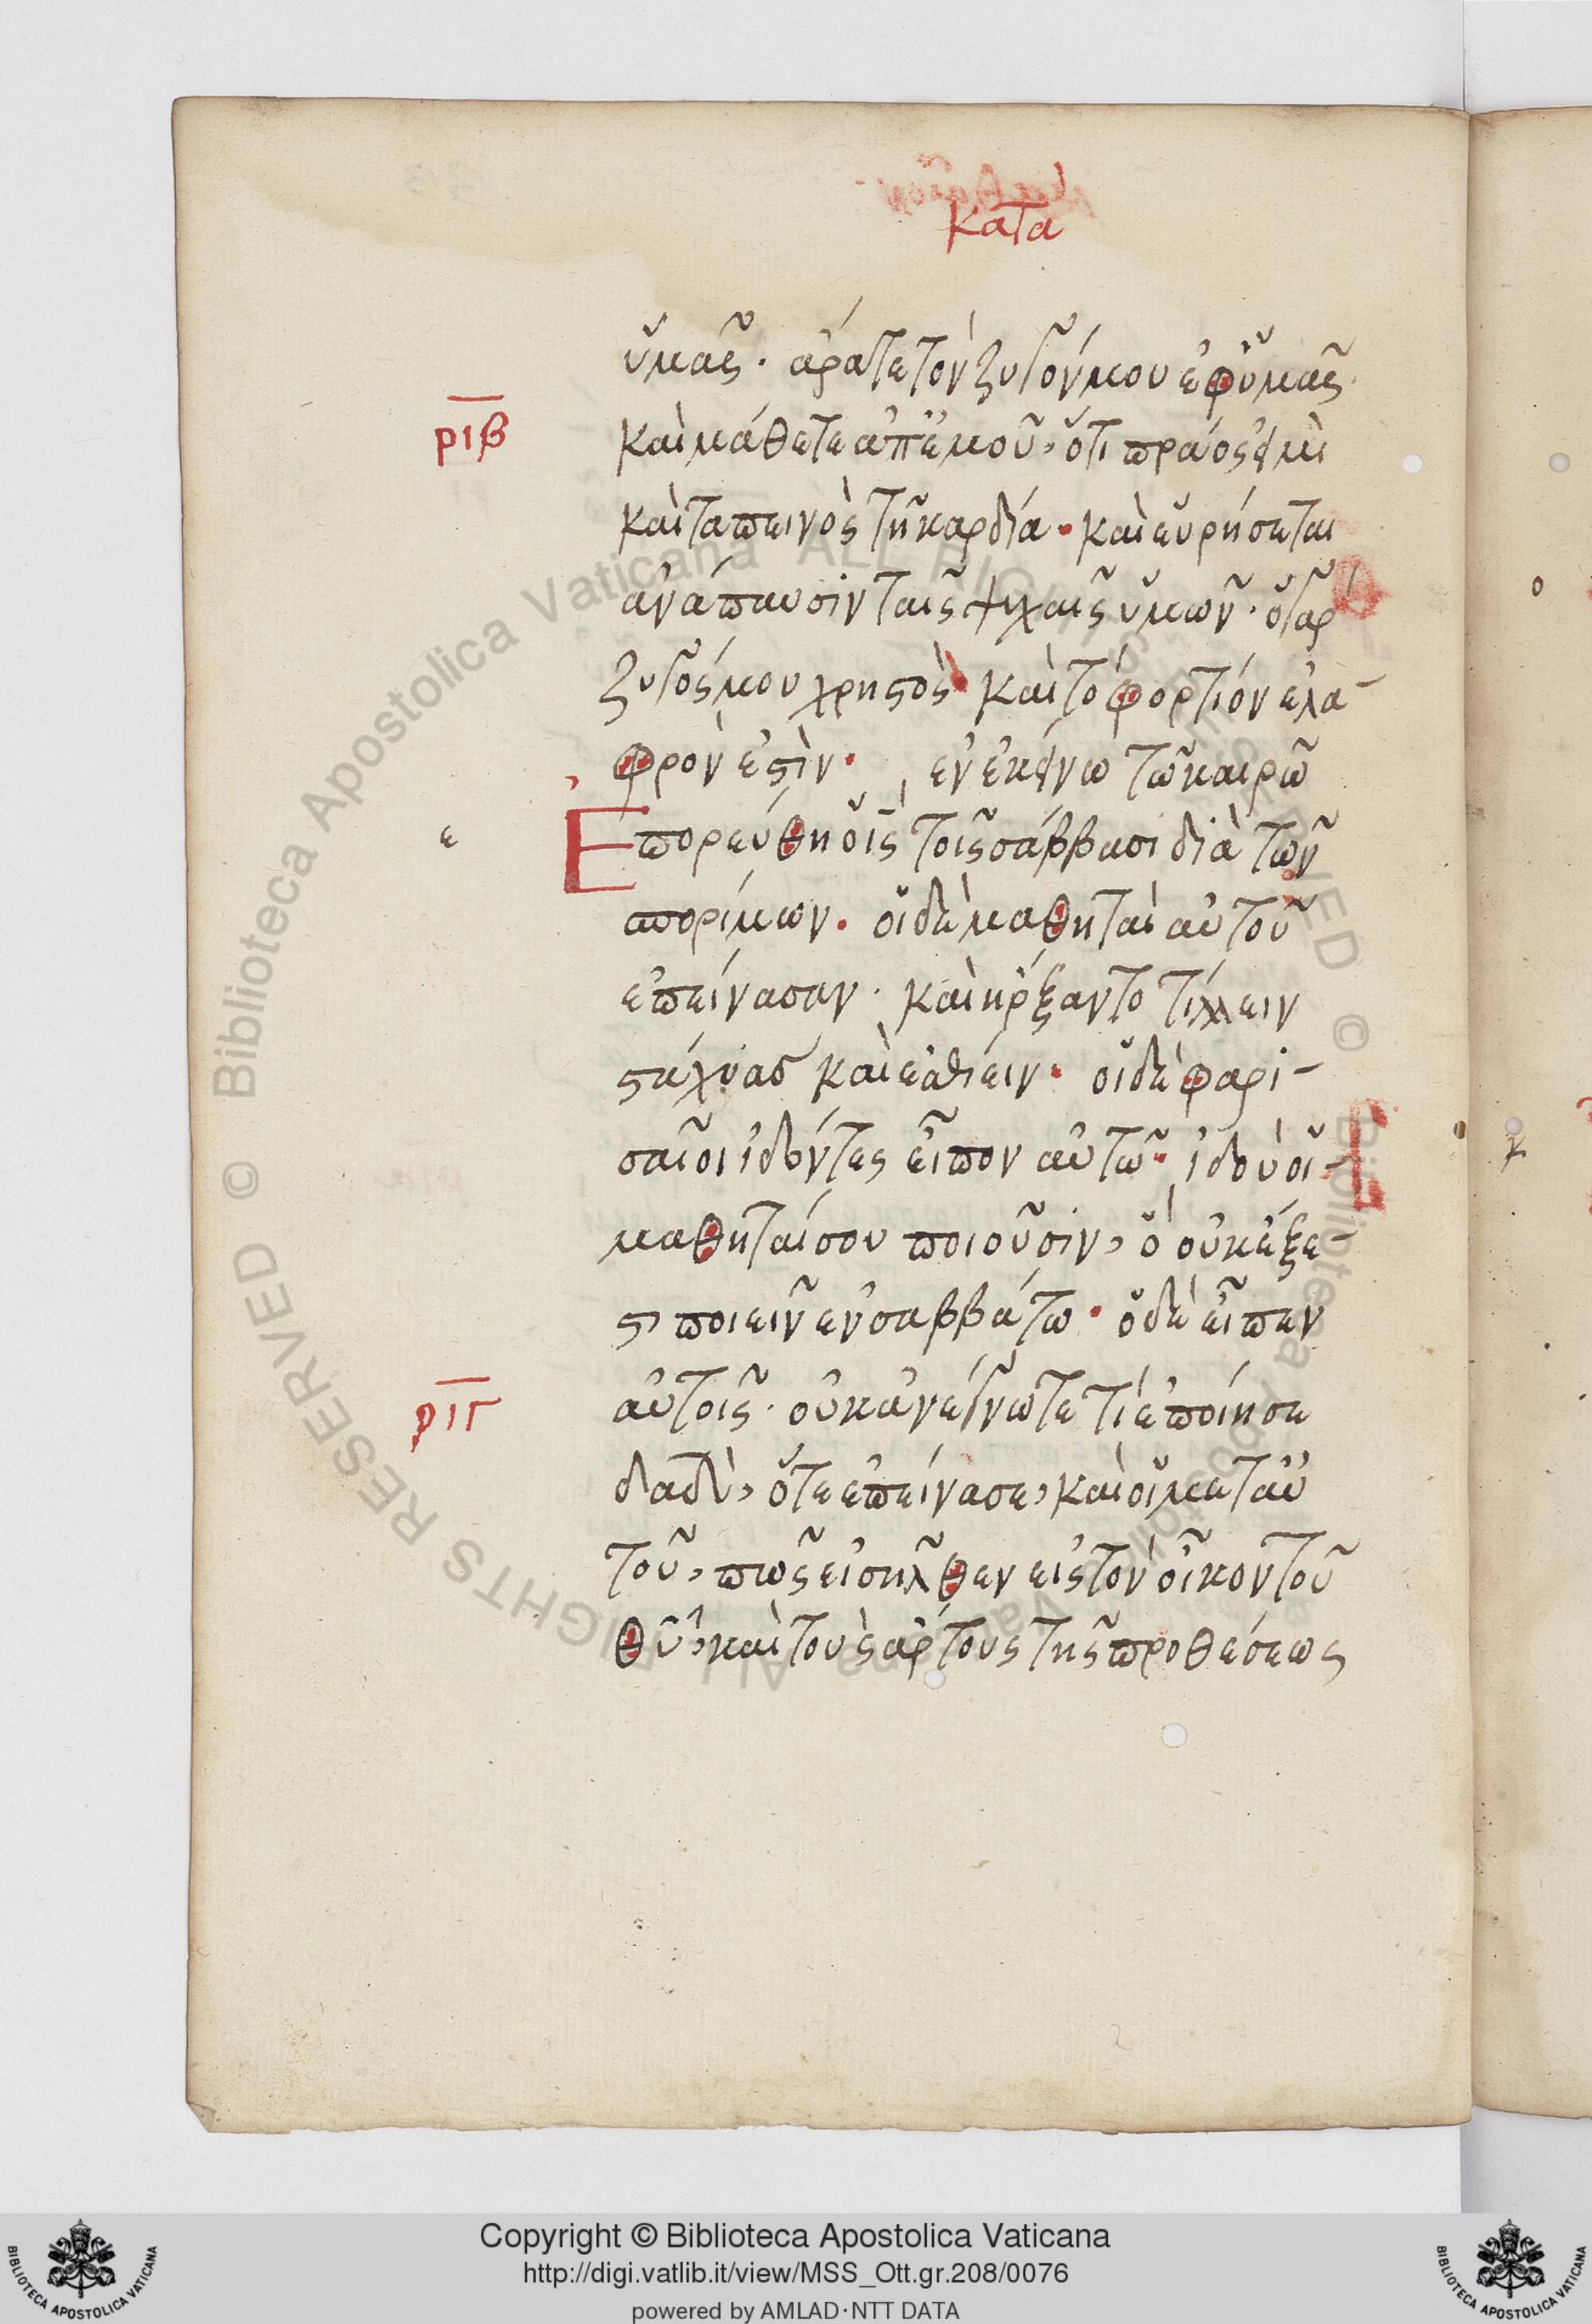 κατα
ὑμᾶς· ἄρατε τὸν ζυγόν μου ἐφ' ὑμᾶς
ριβ
καὶ μάθετε ἀπ' ἐμοῦ, ὅτι πρᾶός εἰμι
καὶ ταπεινὸς τῇ καρδία· καὶ εὑρήσεται
ἀνάπαυσιν ταῖς ψυχαῖς ὑμῶν· ὁ γὰρ
ζυγός μου χρηστὸς καὶ τὸ φορτίον ἐλα-
φρόν ἐστιν· ἐν ἐκείνω τῶ καιρῶ
ε
Ἐπορεύθη ὁ ις τοῖς σάββασι διὰ τῶν
σπορίμων· οἱ δὲ μαθηταὶ αὐτοῦ
ἐπείνασαν· καὶ ἤρξαντο τίλλειν
στάχυας καὶ ἐσθίειν· οἱ δὲ φαρι-
σαῖοι ἰδόντες εἶπον αὐτῶ· ἰδοὺ οἱ
μαθηταί σου ποιοῦσιν, ὃ οὐκ ἔξε-
στι ποιεῖν ἐν σαββάτω· ὁ δὲ εἶπεν
ριγ
αὐτοῖς· οὐκ ἀνέγνωτε τί ἐποίησε
δαδ, ὅτε ἐπείνασε, καὶ οἱ μετ' αὐ
τοῦ, πῶς εἰσῆλθεν εἰς τὸν οἶκον τοῦ
θυ, καὶ τοὺς ἄρτους τῆς προθέσεως
Copyright © Biblioteca Apostolica Vaticana
http://digi.vatlib.it/view/MSS_Ott.gr.208/0076
powered by AMLAD·NTT DATA